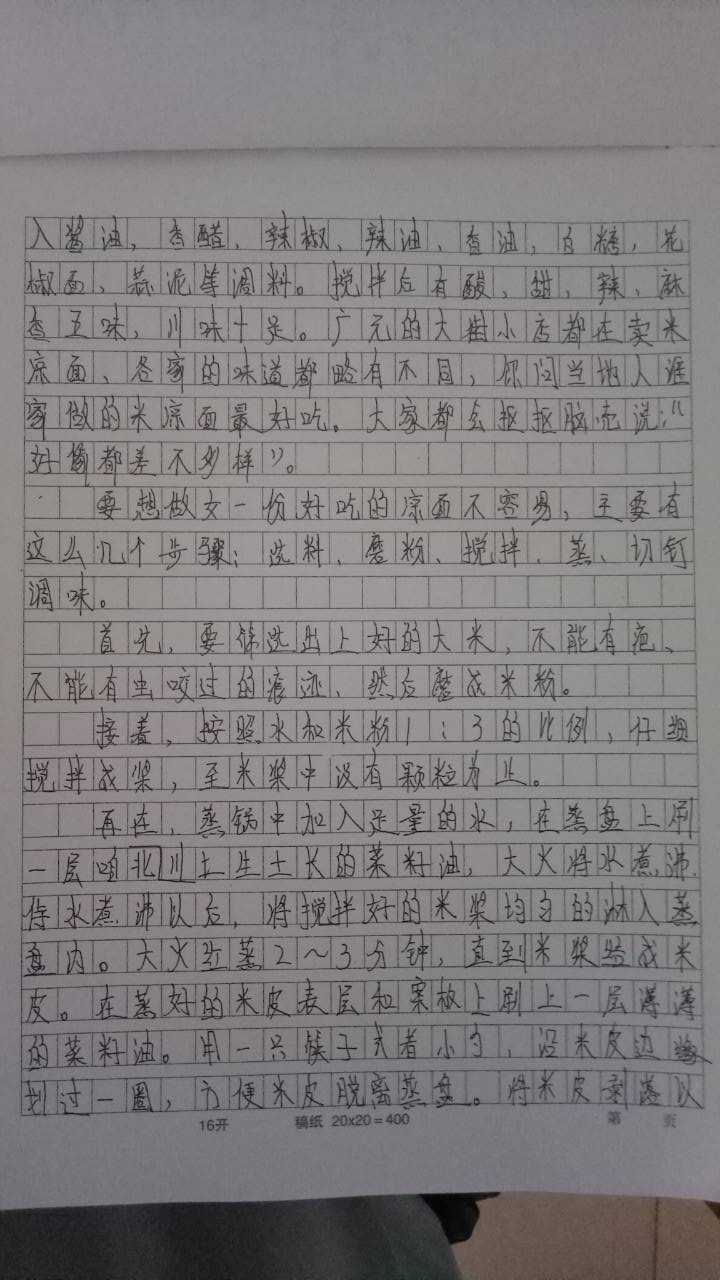 入酱油，香醋、辣椒、辣油、香油，白糖，花
椒面、蒜泥等调料。搅拌后有酸、甜，辣、麻
香五味，川味十足。广元的大街小店都在卖米
凉面、各家的味道都略有不同，你问当地人谁
家做的米凉面最好吃。大家都会抠抠脑壳说：“
好像都差不多样”。
要想做女一份好吃的凉面不容易，主要有
这么几个步骤：选料、磨粉、搅拌、蒸、切钉
调味。
首先，要筛选出上好的大米，不能有疤、
不能有虫咬过的痕迹、然后磨成米粉。
接着，按照水和米粉1：3的比例，仔细
搅拌成浆，至米浆中没有颗粒为止。
再在，蒸锅中加入足量的水，在蒸盘上刷
一层咱北川土生土长的菜籽油，大火将水煮沸.
待水煮沸以后，将搅拌好的米浆均匀的淋入蒸
盘内。大火蒸2～3分钟，直到米浆成米
皮。在蒸好的米皮表层和案板上刷上一层薄薄
的菜籽油。用一只筷子或者小勺，沿米皮边缘
划过一圈，方便米皮脱离蒸盘。将米皮剥落以
16开 稿纸 20x20=400 第 页